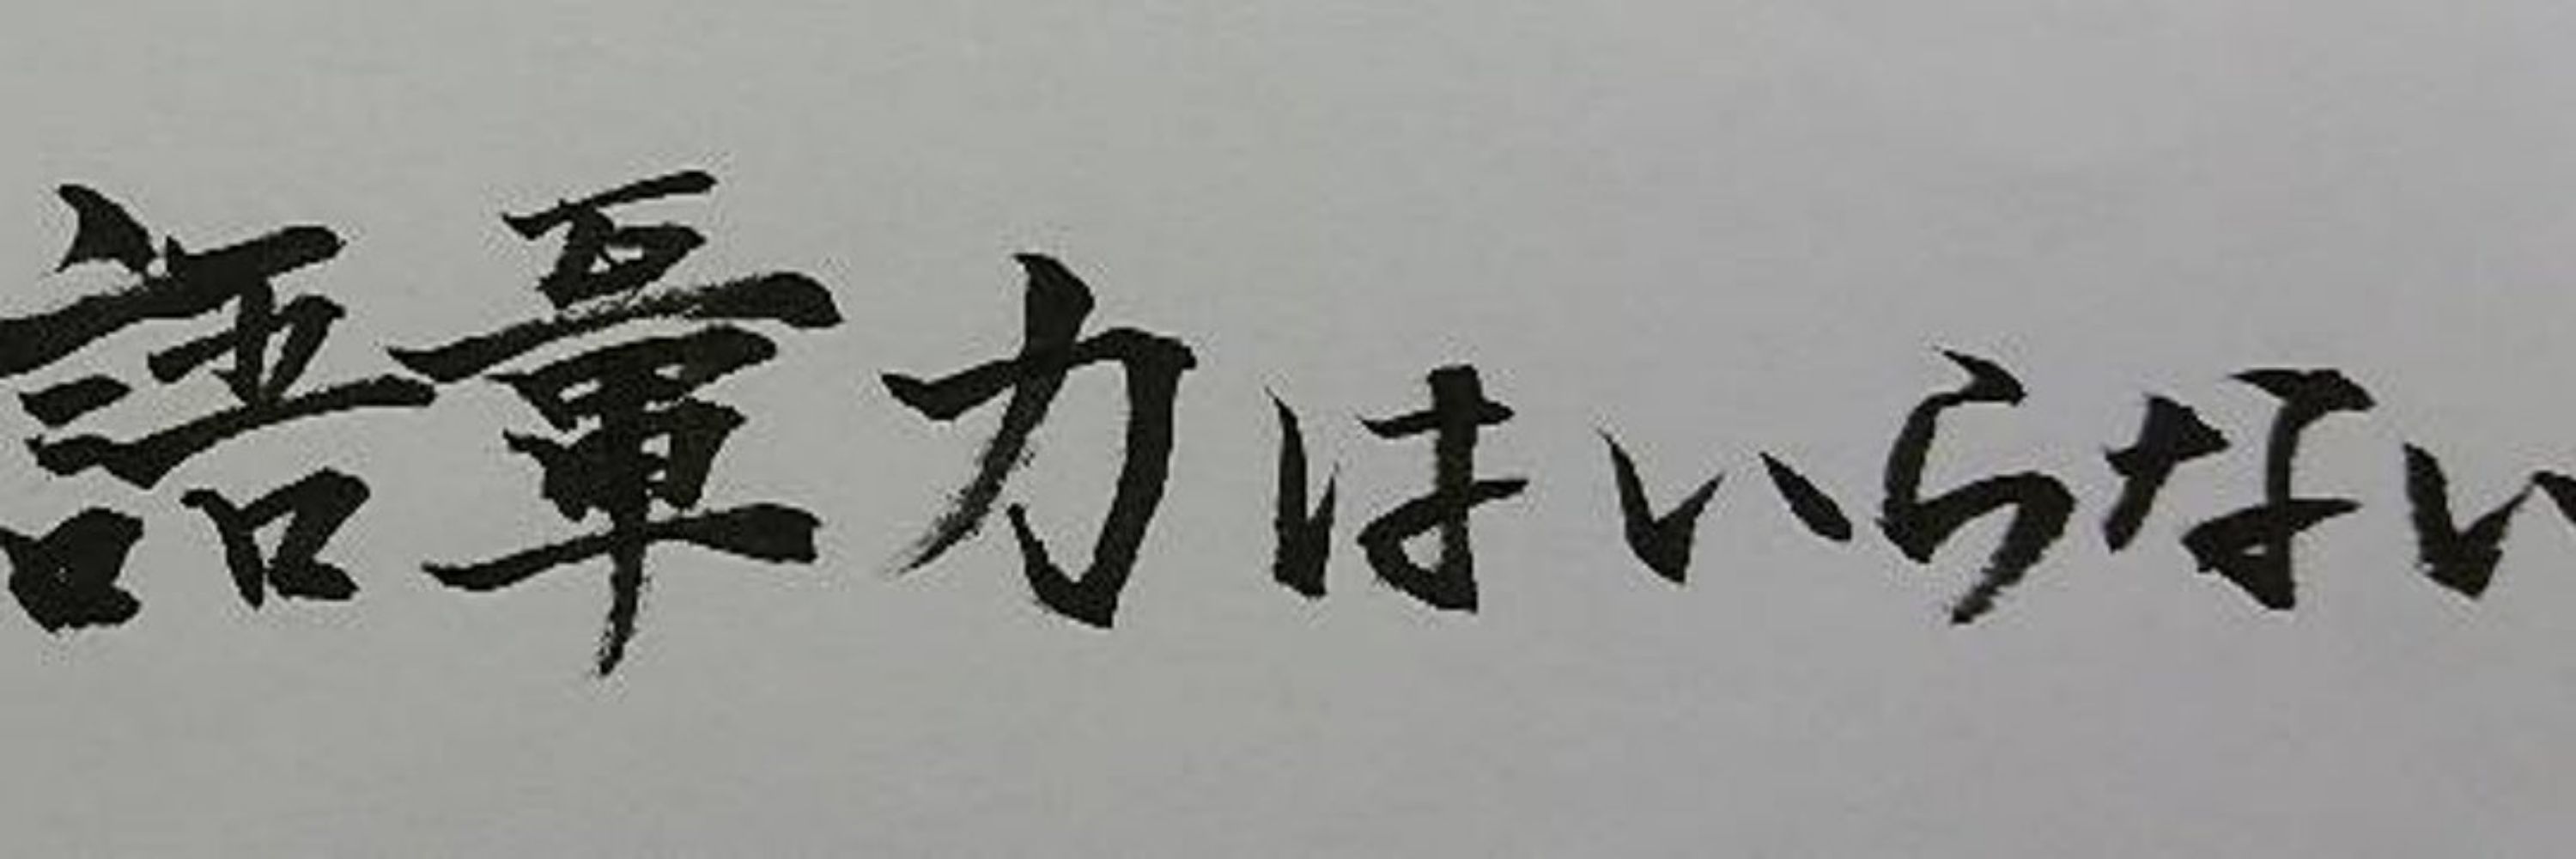 語彙力はいらない